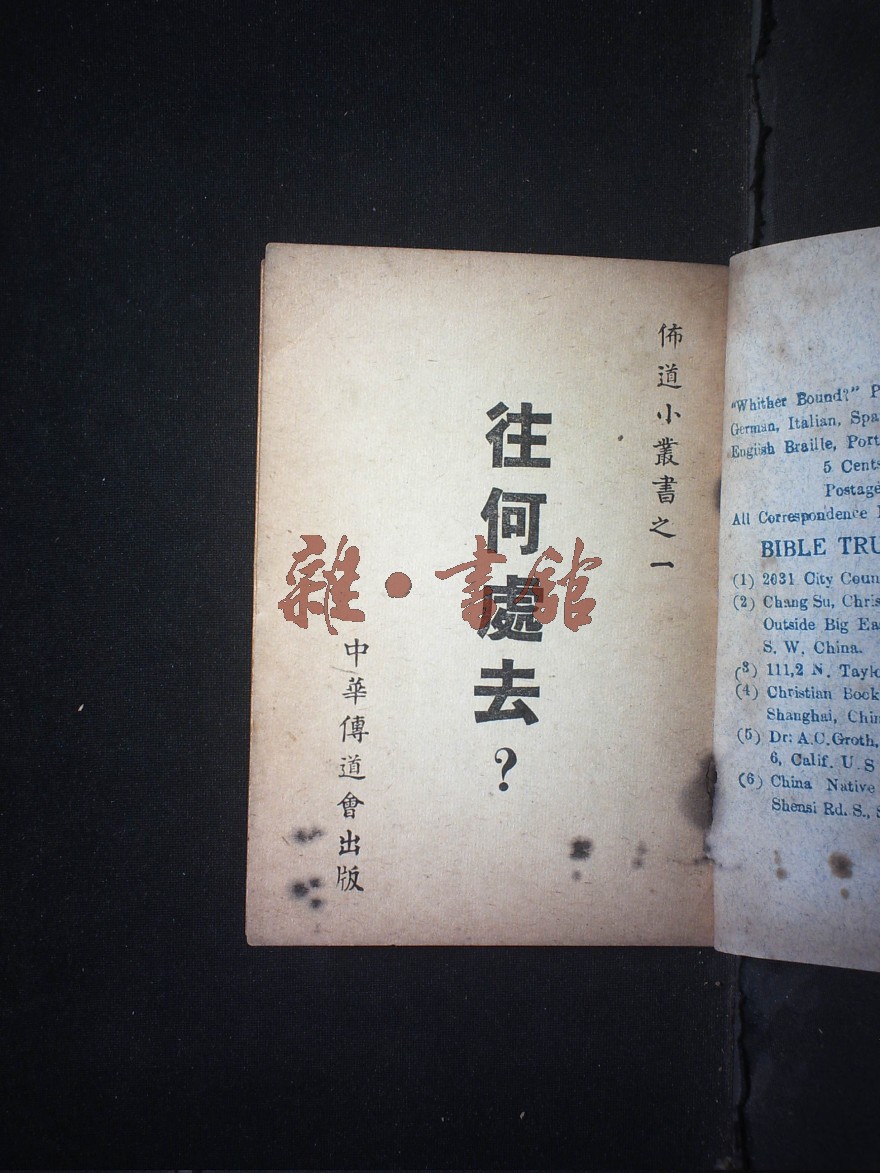 佈道小叢書之一
往何處去?
中華傳道會出版
雜·書館
"Whither Bound?" P
German, Italian, Spa
English Braille, Port
5 Cents
Postage
All Correspondence
BIBLE TRU
(1) 2631 City Coun
(2) Chang Su, Chris
Outside Big Ea
S. W. China.
(3) 111,2 N. Taylo
(4) Christian Book
Shanghai, Chin
(5) Dr: A.C.Groth,
6, Calif. U. S
(6) China Native
Shensi Rd. S., S